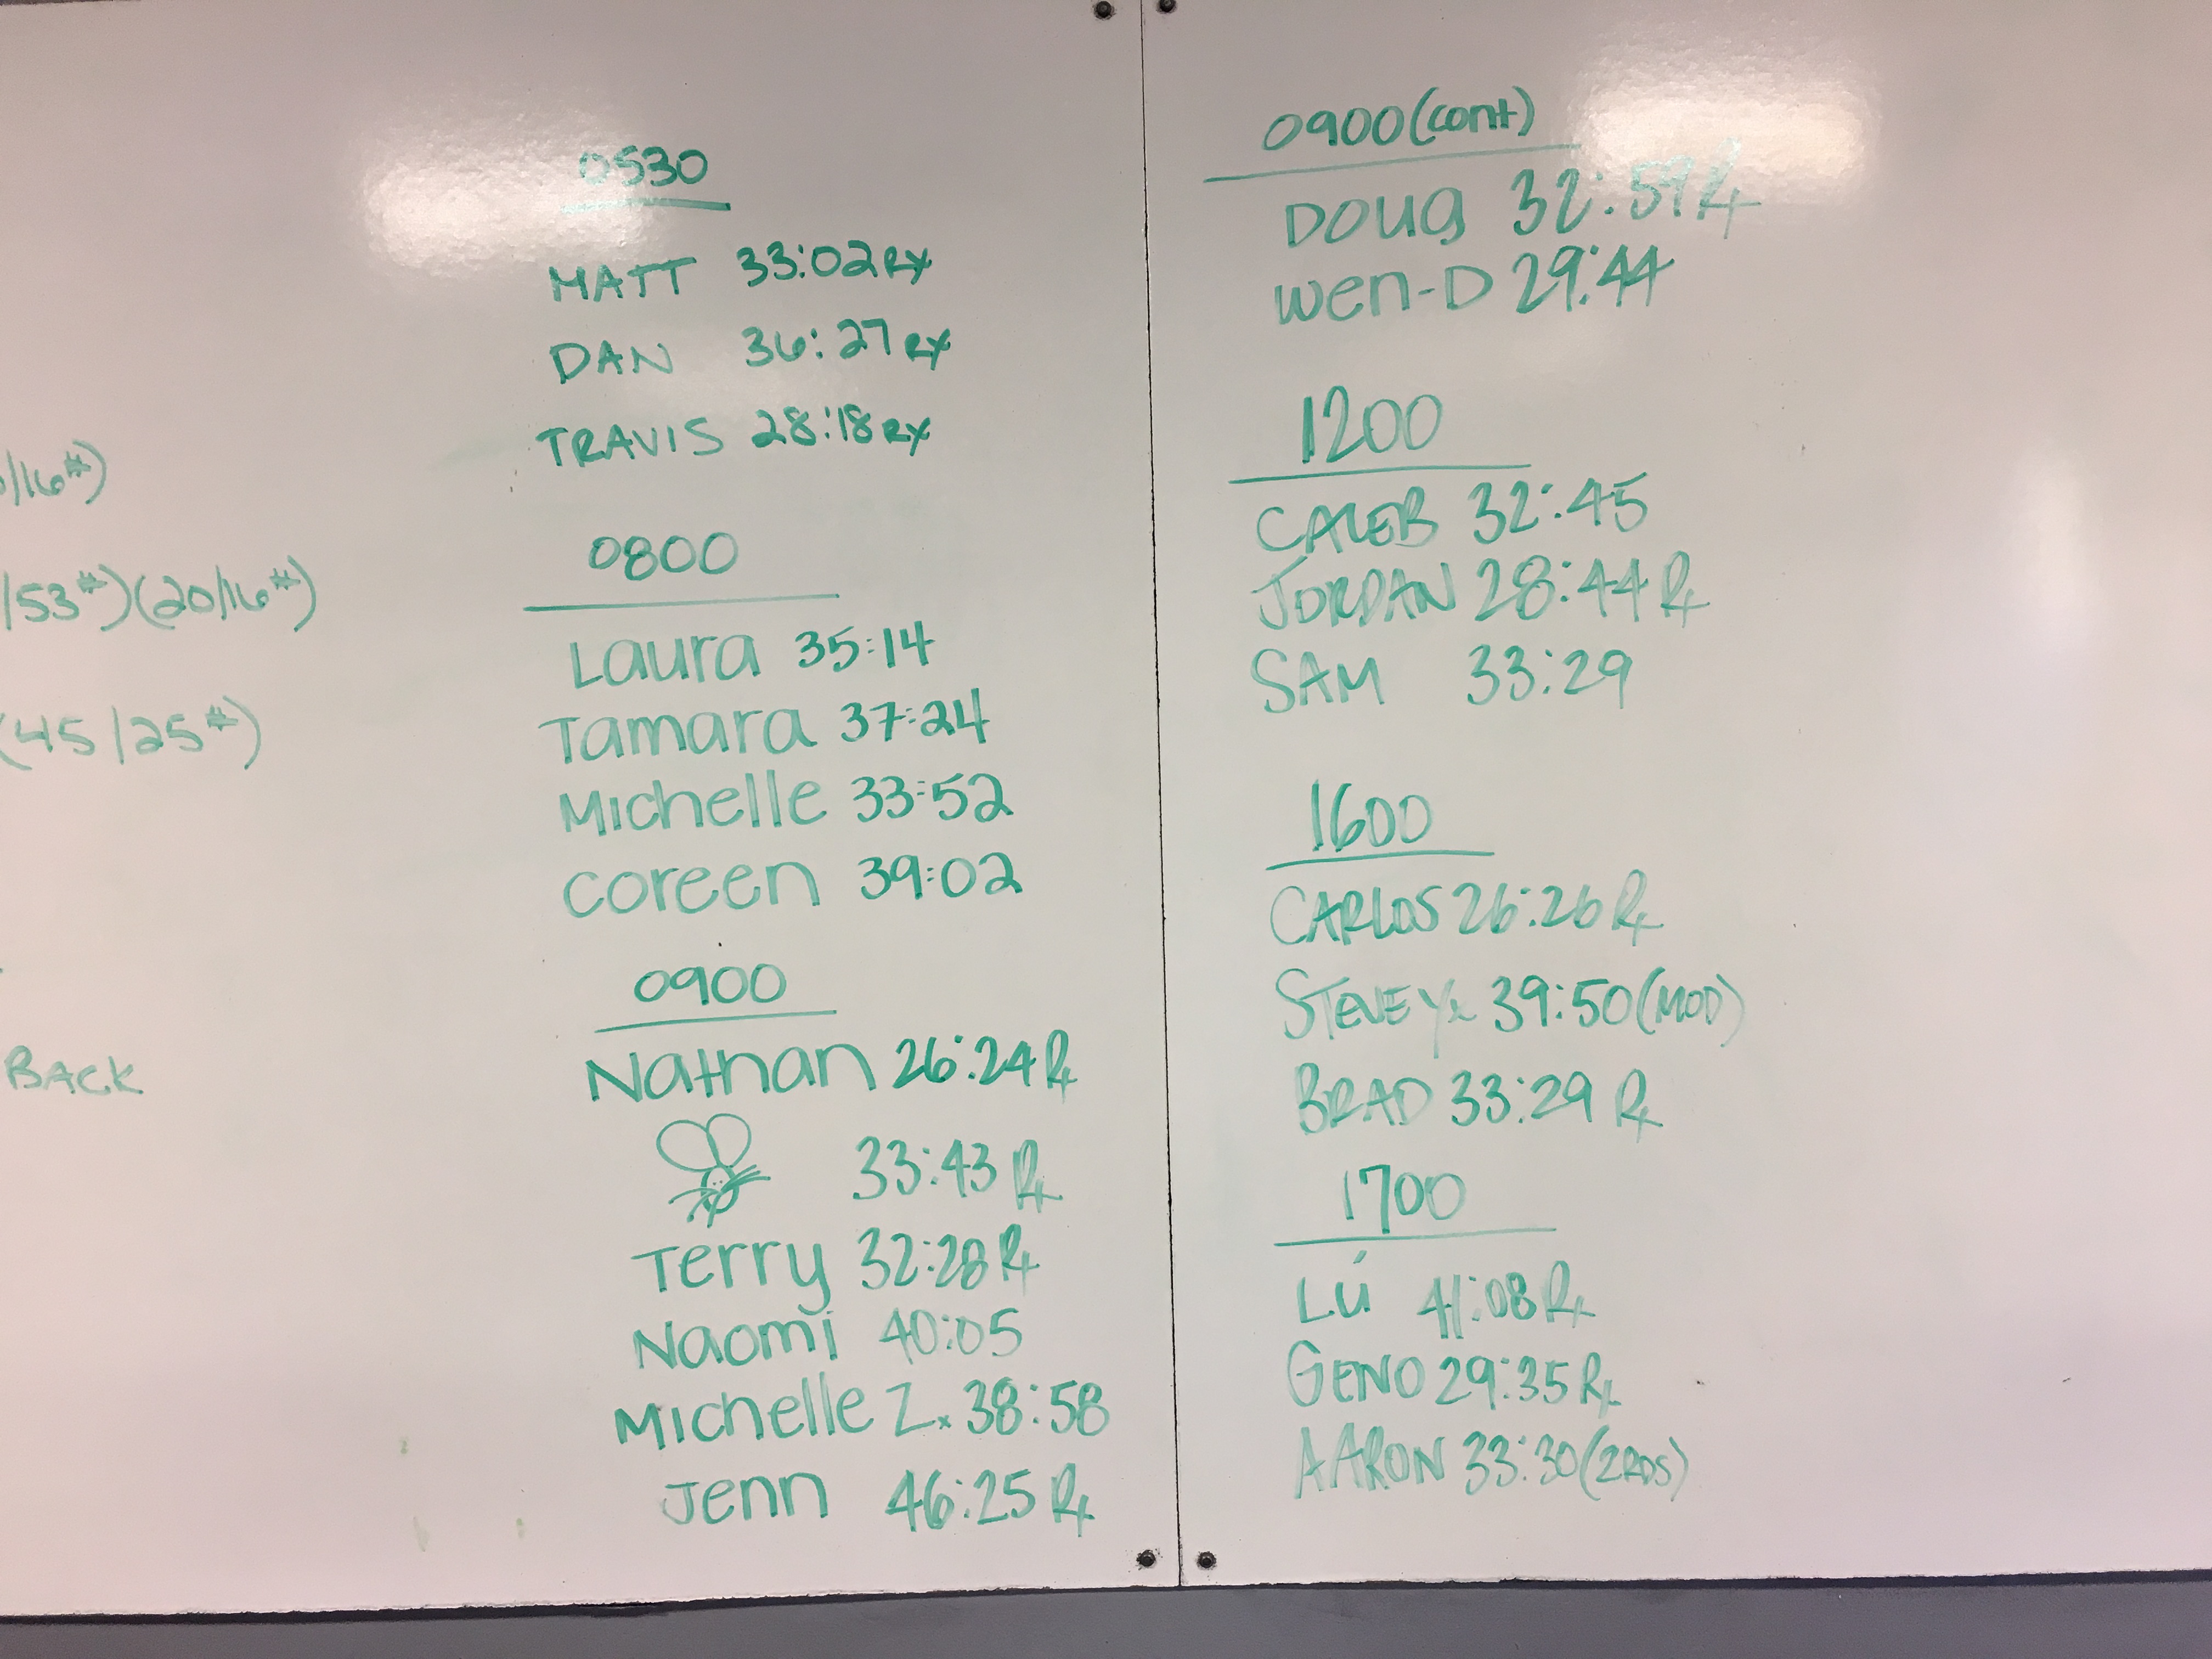 /16#)
/53#)(20/16#)
(45/25#)
BACK
0530
MATT 33:02 RX
DAN 36:27 RX
TRAVIS 28:18 RX
0800
Laura 35:14
Tamara 37:24
Michelle 33:52
Coreen 39:02
0900
Nathan 26:24 Rx
33:43 Rx
Terry 32:28 Rx
Naomi 40:05
Michelle Z. 38:58
Jenn 46:25 Rx
0900 (cont)
Doug 32:59 Rx
Wen-D 29:44
1200
CALEB 32:45
JORDAN 28:44 Rx
SAM 33:29
1600
CARLOS 26:26 Rx
STEVE Y. 39:50 (MOD)
BRAD 33:29 Rx
1700
LÚ 41:08 Rx
GENO 29:35 Rx
AARON 33:30 (2RDS)